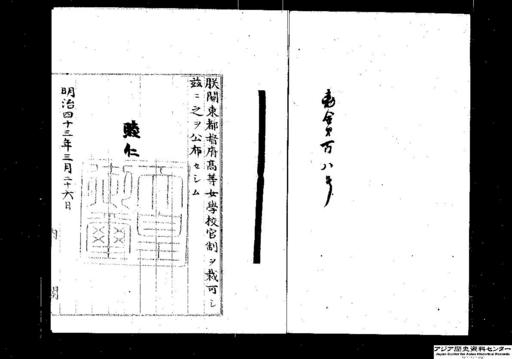 勅令第百八号
朕關東都督府高等女學校官制ヲ裁可シ
茲ニ之ヲ公布セシム
睦仁
天皇御璽
明治四十三年三月二十六日
内閣
アジア歴史資料センター
Japan Center for Asian Historical Records